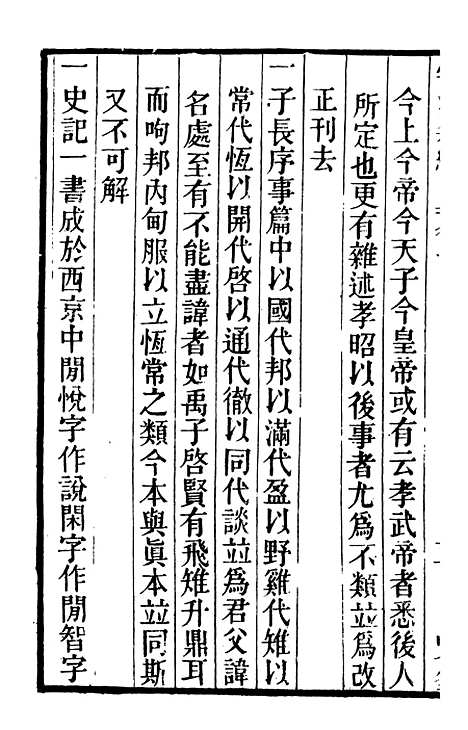 今上今帝今天子今皇帝或有云孝武帝者悉後人
所定也更有雜述孝昭以後事者尤爲不類並爲改
正刊去
一子長序事篇中以國代邦以滿代盈以野雞代雉以
常代恆以開代啓以通代徹以同代談並爲君父諱
名處至有不能盡諱者如禹子啓賢有飛雉升鼎耳
而呴邦內甸服以立恆常之類今本與眞本並同斯
又不可解
一史記一書成於西京中閒悅字作說閑字作閒智字